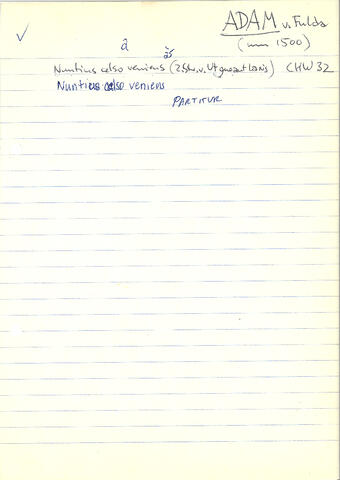 ✓
ADAM v. Fulda
(um 1500)
â ãs
Nuntius celso veniens (2 Stn. v. Ut queant laxis) CHW 32
Nuntius celso veniens
PARTITUR